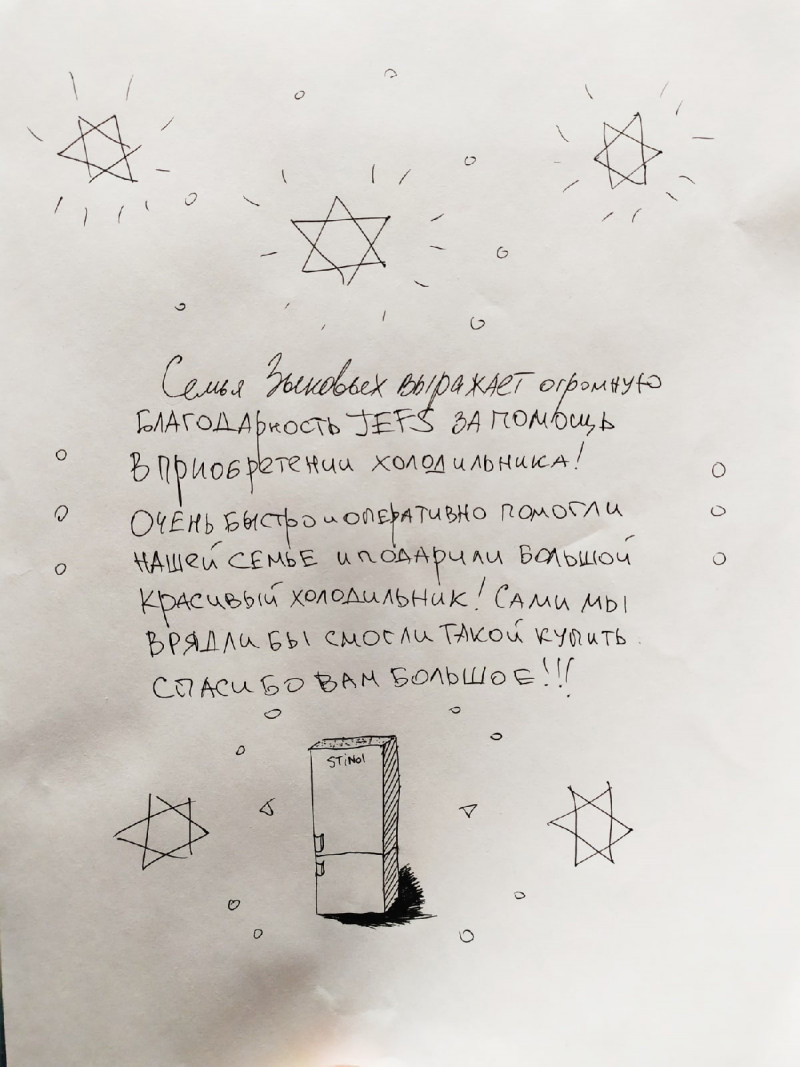 Семья Зыковых выражает огромную
БЛАГОДАРНОСТЬ JEFS ЗА ПОМОЩЬ
В ПРИОБРЕТЕНИИ ХОЛОДИЛЬНИКА!
ОЧЕНЬ БЫСТРО И ОПЕРАТИВНО ПОМОГЛИ
НАШЕЙ СЕМЬЕ И ПОДАРИЛИ БОЛЬШОЙ
КРАСИВЫЙ ХОЛОДИЛЬНИК! САМИ МЫ
ВРЯДЛИ БЫ СМОГЛИ ТАКОЙ КУПИТЬ.
СПАСИБО ВАМ БОЛЬШОЕ!!!
STiNOl